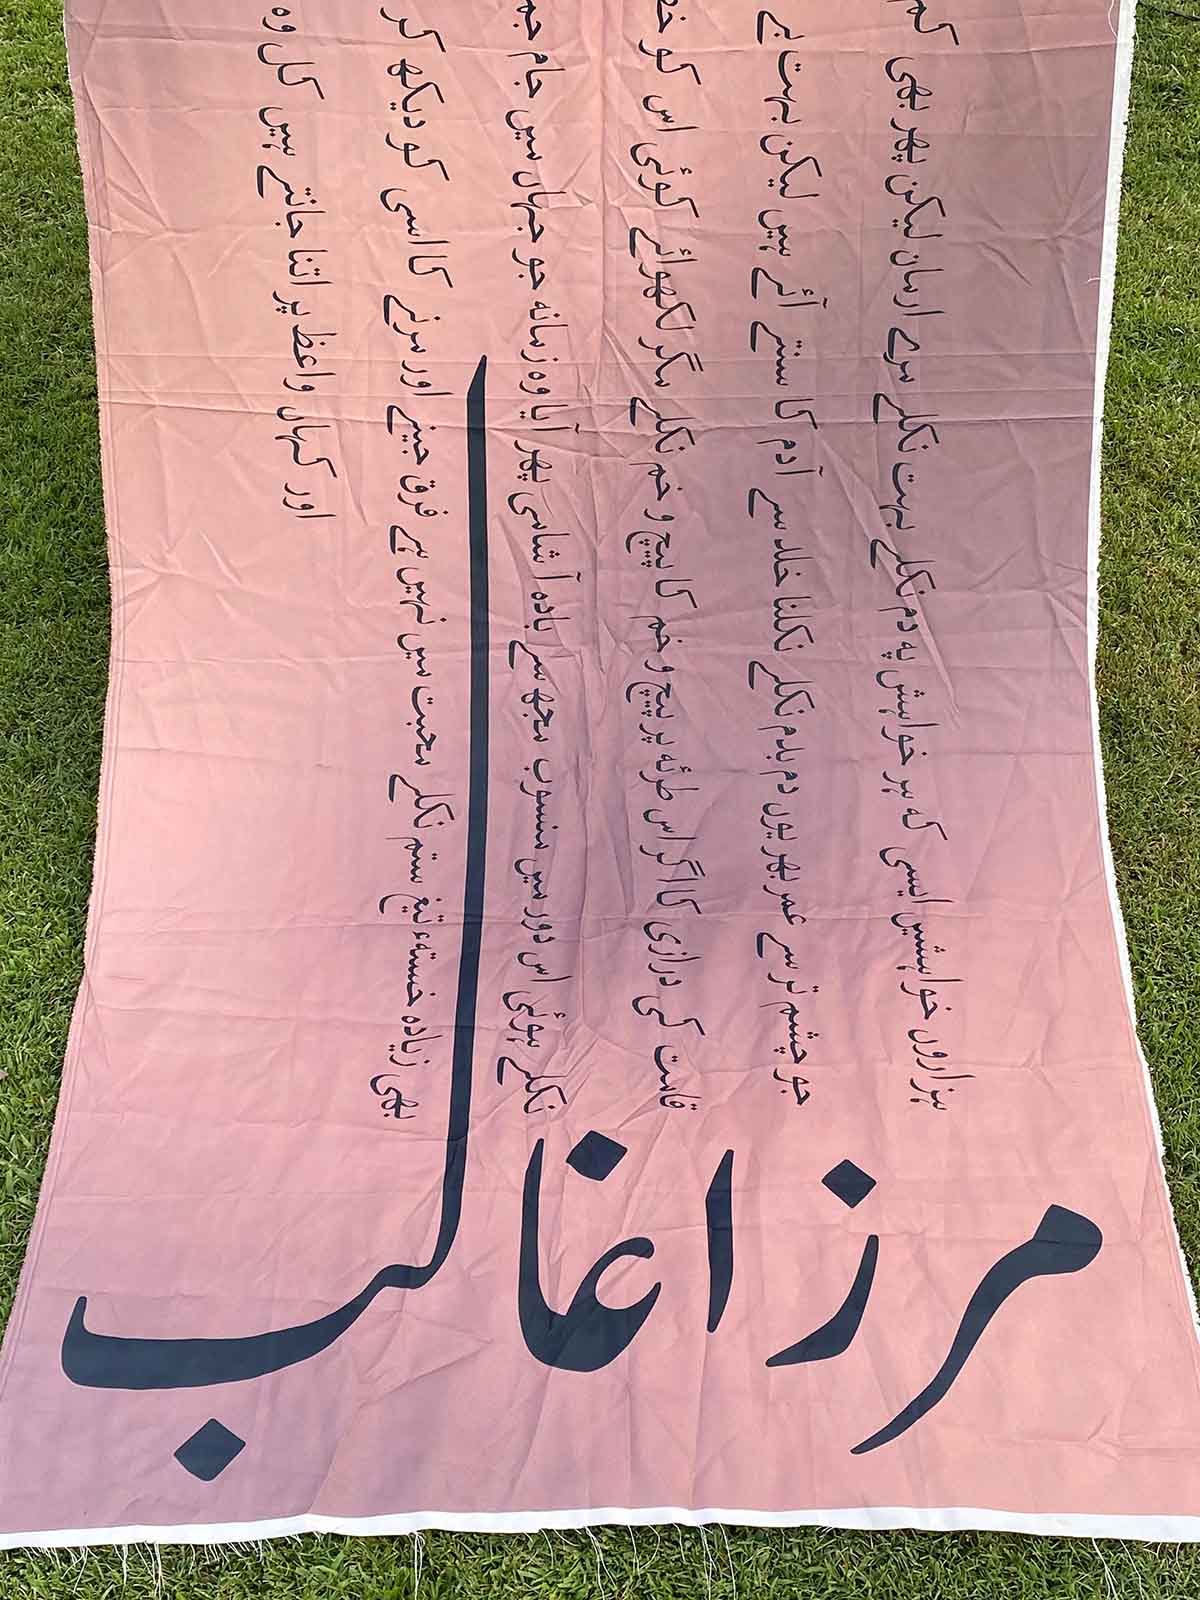 مرزا غالب
ہزاروں خواہشیں ایسی کہ ہر خواہش پہ دم نکلے بہت نکلے مرے ارمان لیکن پھر بھی کم
جو چشم تر سے عمر بھر یوں دم بدم نکلے نکلنا خلد سے آدم کا سنتے آئے ہیں لیکن بہت بے
قامت کی درازی کا اگر اس طرئہ پر پیچ و خم کا پیچ و خم نکلے مگر لکھوائے کوئی اس کو
نکلے ہوئی اس دور میں منسوب مجھ سے بادہ آشامی پھر آیا وہ زمانہ جو جہاں میں جام
بھی زیادہ خستہء تیغ ستم نکلے محبت میں نہیں ہے فرق جینے اور مرنے کا اسی کو دیکھ کر
اور کہاں واعظ پر اتنا جانتے ہیں کل وہ